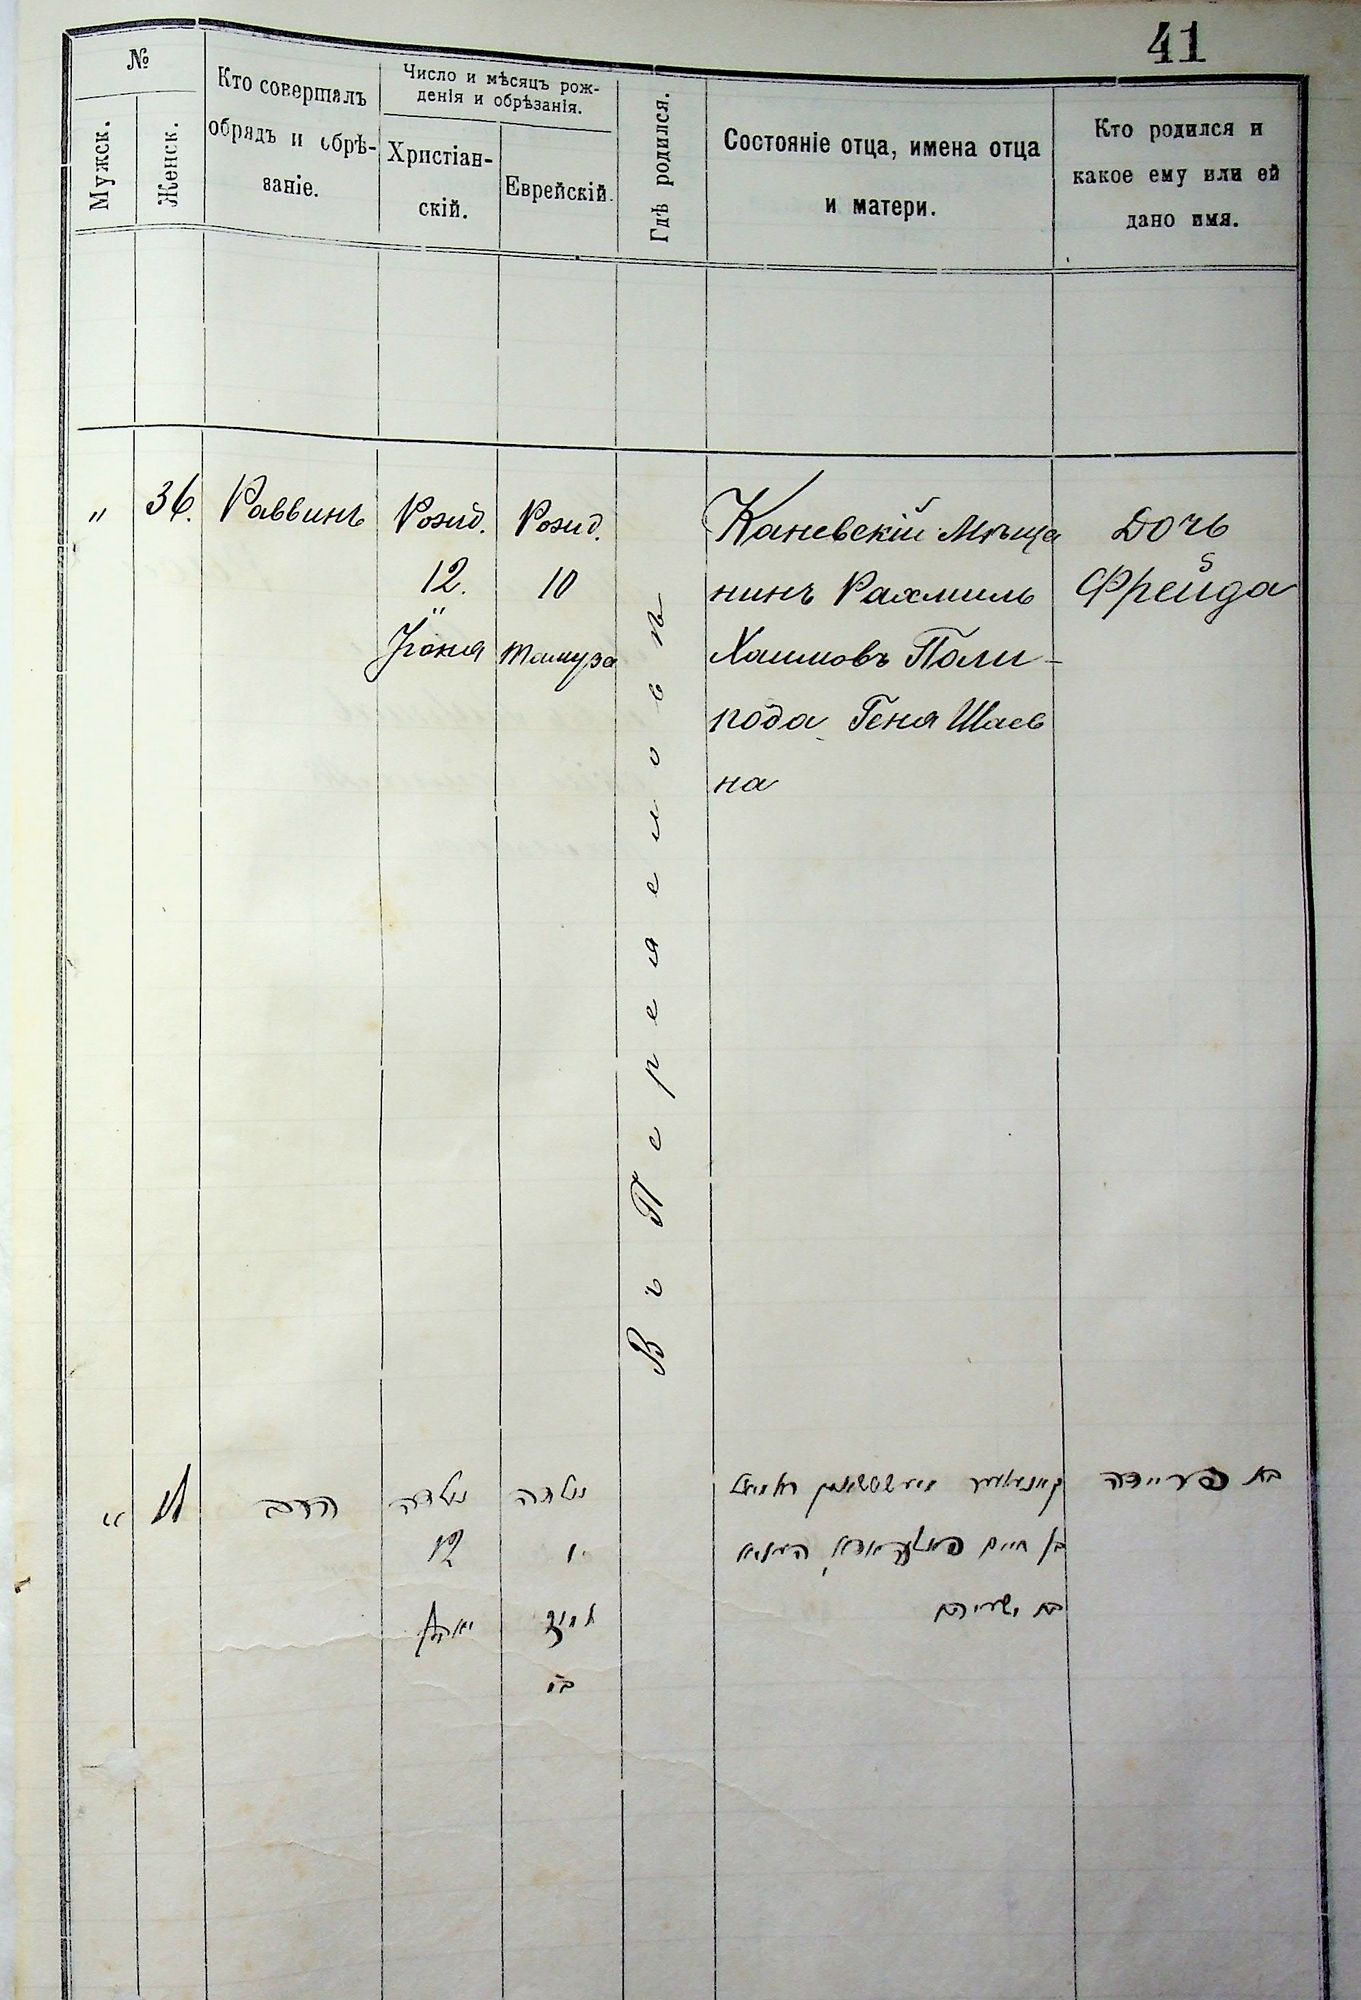 41
№
Мужск.
Женск.
Кто совершалъ
обрядъ и обрѣ-
заніе.
Число и мѣсяцъ рож-
денія и обрѣзанія.
Христіан-
скій.
Еврейскій.
Гдѣ родился.
Состояніе отца, имена отца
и матери.
Кто родился и
какое ему или ей
дано имя.
" 36. Раввинъ
Рожд.
12.
Іюня
Рожд.
10
тамуза
Въ Переяславѣ
Каневскій Мѣща
нинъ Рахмиль
Хаимовъ Поли-
года Геня Шаев
на
Дочь
Фрейда
"
הרב
נולדה
12
נולדה
י
תמוז
בן חיים
בת ישעיה
בת פריידה